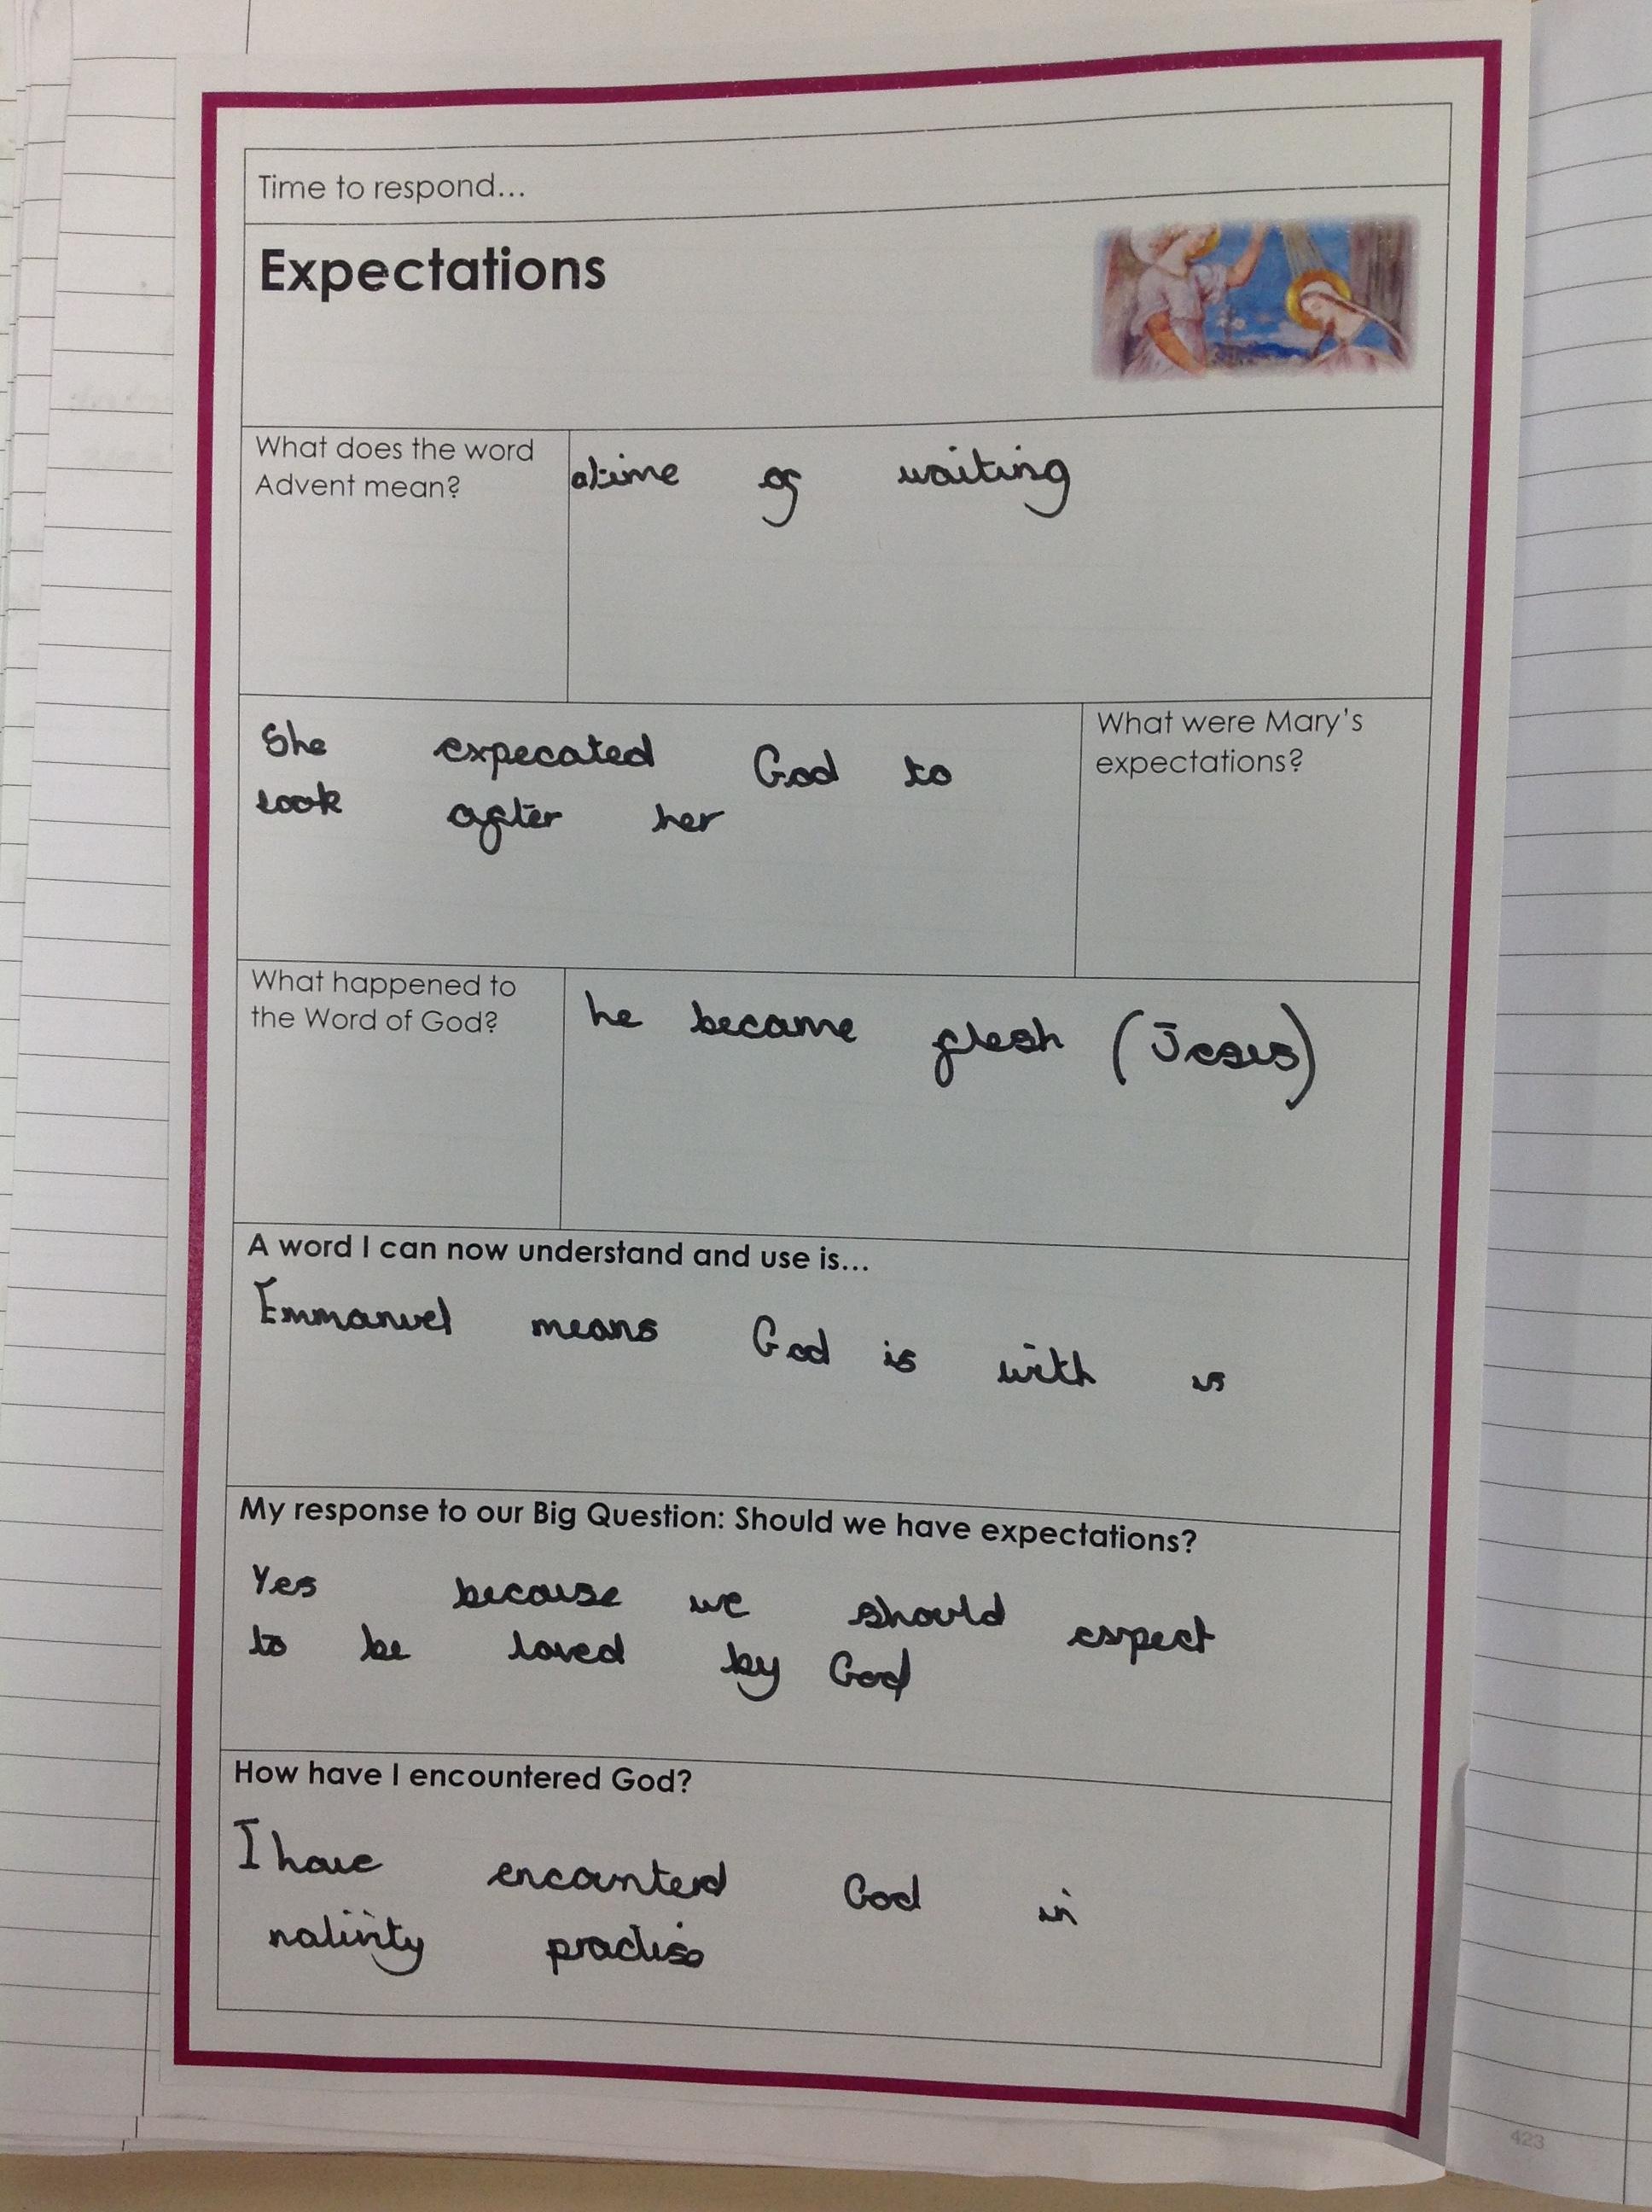 Time to respond...
Expectations
What does the word
Advent mean?
atime of waiting
She expecated God to
look after her
What were Mary's
expectations?
What happened to
the Word of God?
he became flesh (Jesus)
A word I can now understand and use is...
Emmanuel means God is with us
My response to our Big Question: Should we have expectations?
Yes because we should expect
to be loved by God
How have I encountered God?
I have encounterd God in
nativity
423